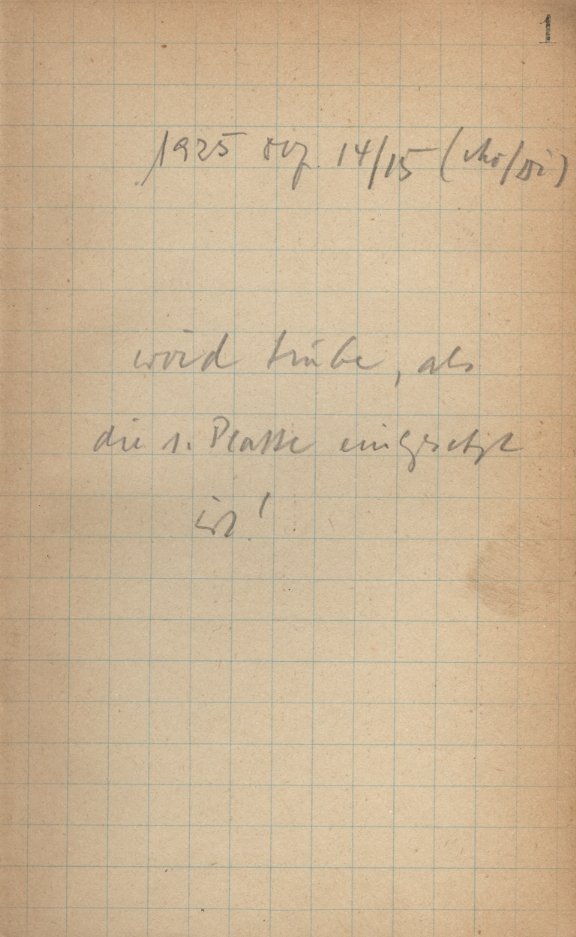 1
1925 Dez 14/15 (Mo/Di)
wird trübe, als
die 1. Platte eingesetzt
ist!